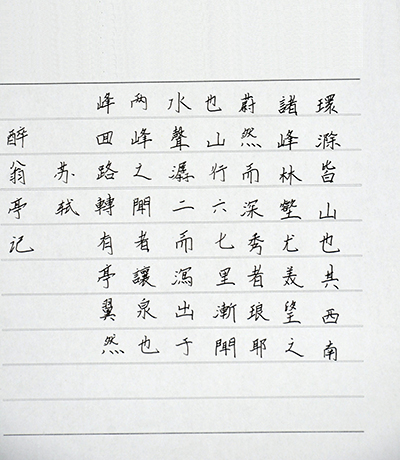 環滁皆山也其西南
諸峰林壑尤美望之
蔚然而深秀者琅耶
也山行六七里漸聞
水聲潺二而瀉出于
兩峰之間者讓泉也
峰回路轉有亭翼然
苏軾
醉翁亭記